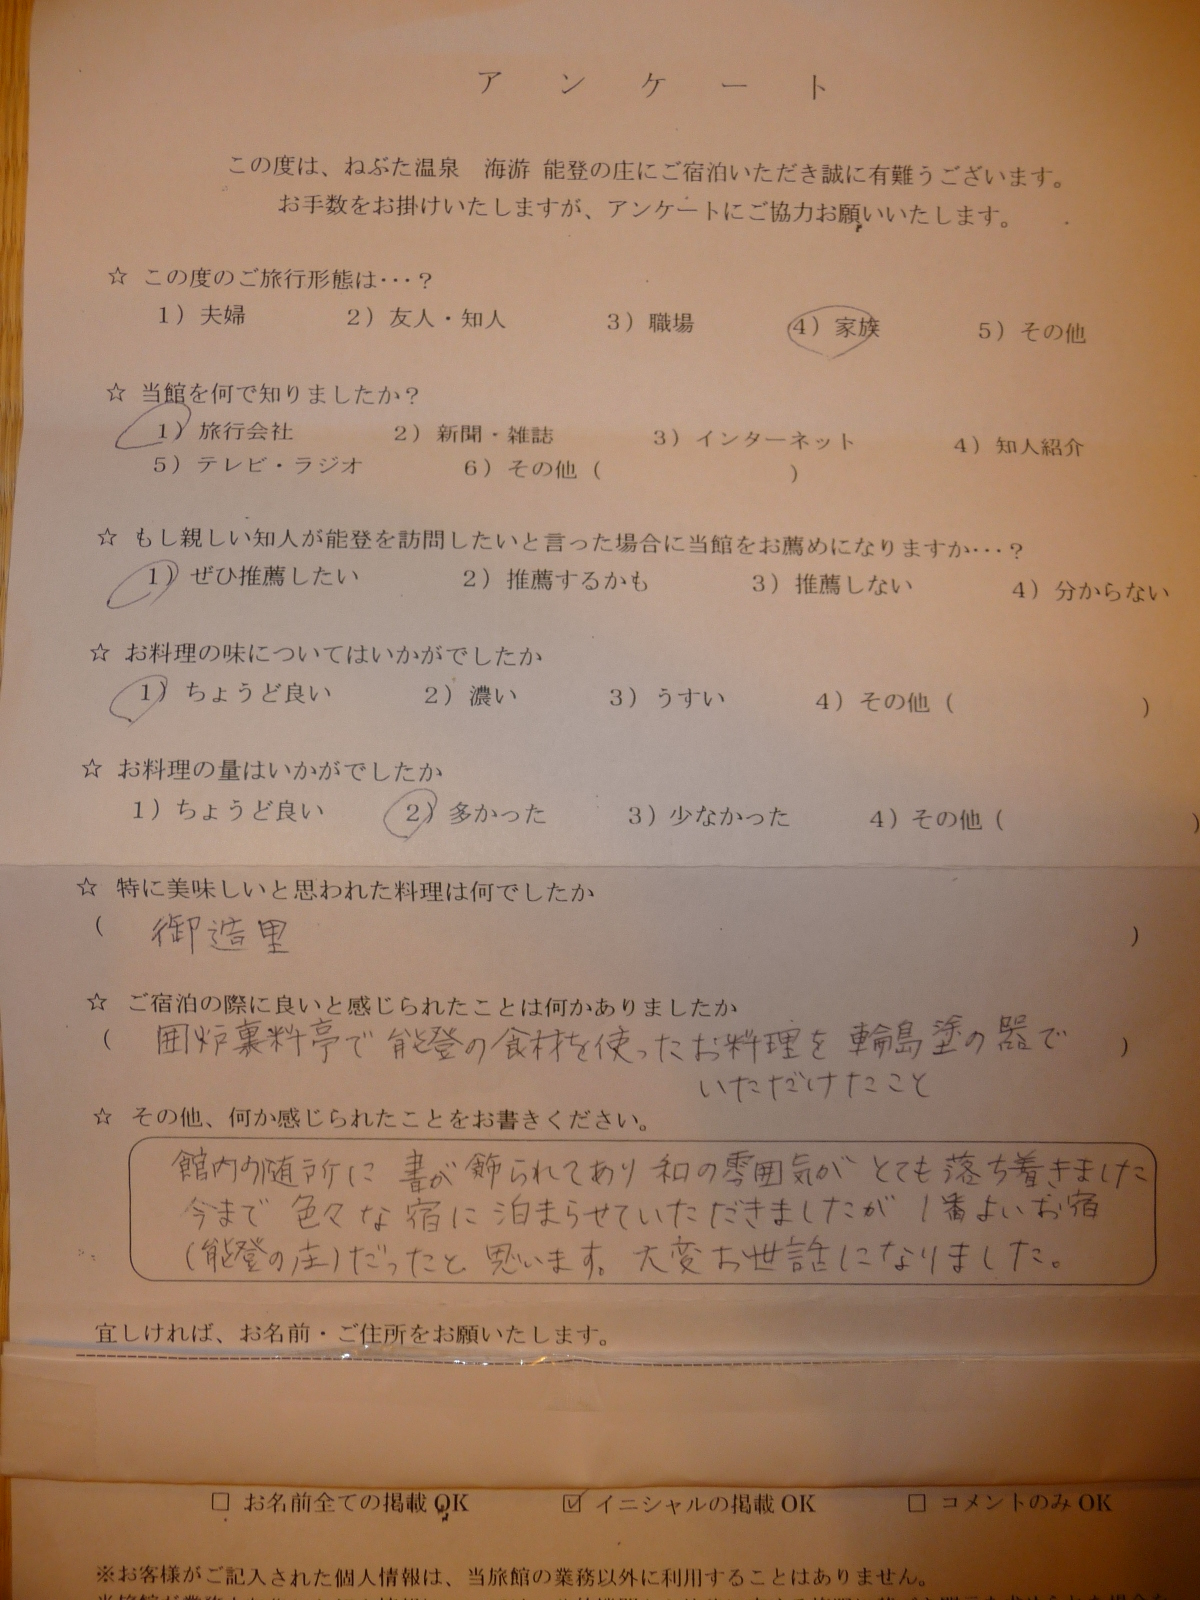 アンケート
この度は、ねぶた温泉 海游 能登の庄にご宿泊いただき誠に有難うございます。
お手数をお掛けいたしますが、アンケートにご協力お願いいたします。
☆ この度のご旅行形態は・・・？
1）夫婦 2）友人・知人 3）職場 4）家族 5）その他
☆ 当館を何で知りましたか？
1）旅行会社 2）新聞・雑誌 3）インターネット 4）知人紹介
5）テレビ・ラジオ 6）その他（ ）
☆ もし親しい知人が能登を訪問したいと言った場合に当館をお薦めになりますか・・・？
1）ぜひ推薦したい 2）推薦するかも 3）推薦しない 4）分からない
☆ お料理の味についてはいかがでしたか
1）ちょうど良い 2）濃い 3）うすい 4）その他（ ）
☆ お料理の量はいかがでしたか
1）ちょうど良い 2）多かった 3）少なかった 4）その他（ ）
☆ 特に美味しいと思われた料理は何でしたか
（ 御造里 ）
☆ ご宿泊の際に良いと感じられたことは何かありましたか
（ 囲炉裏料亭で 能登の食材を使ったお料理を 輪島塗の器で ）
いただけたこと
☆ その他、何か感じられたことをお書きください。
館内の随所に 書が飾られてあり 和の雰囲気が とても落ち着きました
今まで 色々な宿に 泊まらせていただきましたが 1番よいお宿
（能登の庄）だったと 思います。大変お世話になりました。
宜しければ、お名前・ご住所をお願いたします。
□ お名前全ての掲載OK ☑ イニシャルの掲載OK □ コメントのみOK
※お客様がご記入された個人情報は、当旅館の業務以外に利用することはありません。